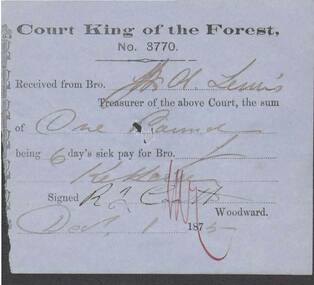 Court King of the Forest,
No. 3770.
Received from Bro. Lewis
Treasurer of the above Court, the sum
of One Pound
being 6 day's sick pay for Bro.
Signed
Woodward.
Dec. 1 1875